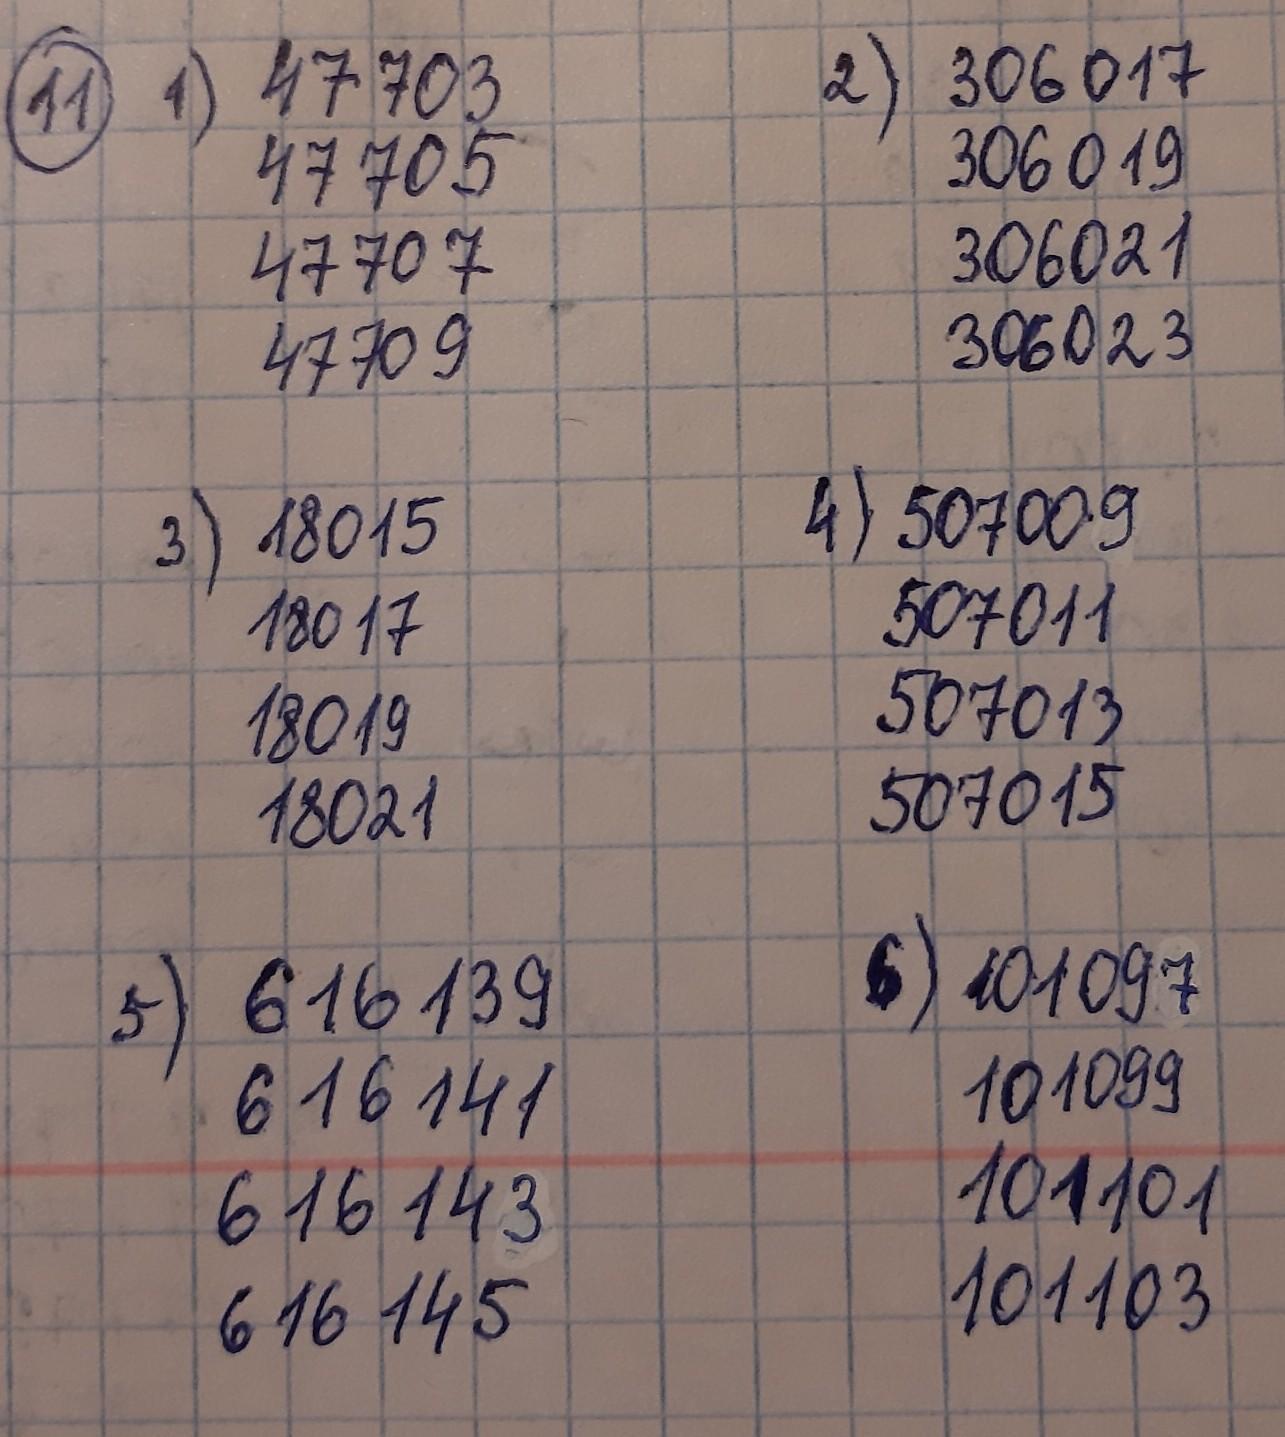 11 1) 47 703
47 705
47 707
47 709
2) 306 017
306 019
306 021
306 023
3) 18015
18017
18019
18021
4) 507009
507011
507013
507015
5) 616 139
616 141
616 143
616 145
6) 101 097
101 099
101 101
101 103